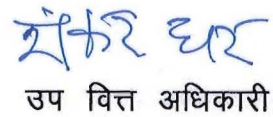 शंकर धर
उप वित्त अधिकारी